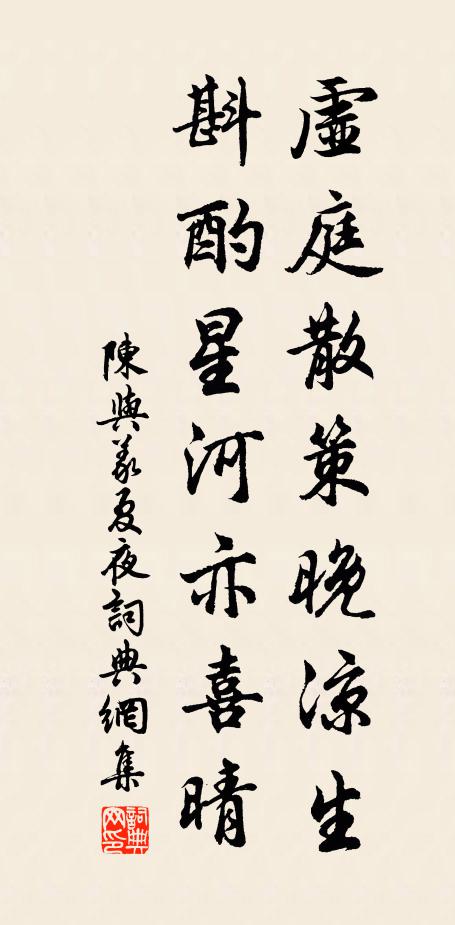 虛庭散策晚涼生
斟酌星河亦喜晴
陳與義夏夜詞典網集
詞典网印